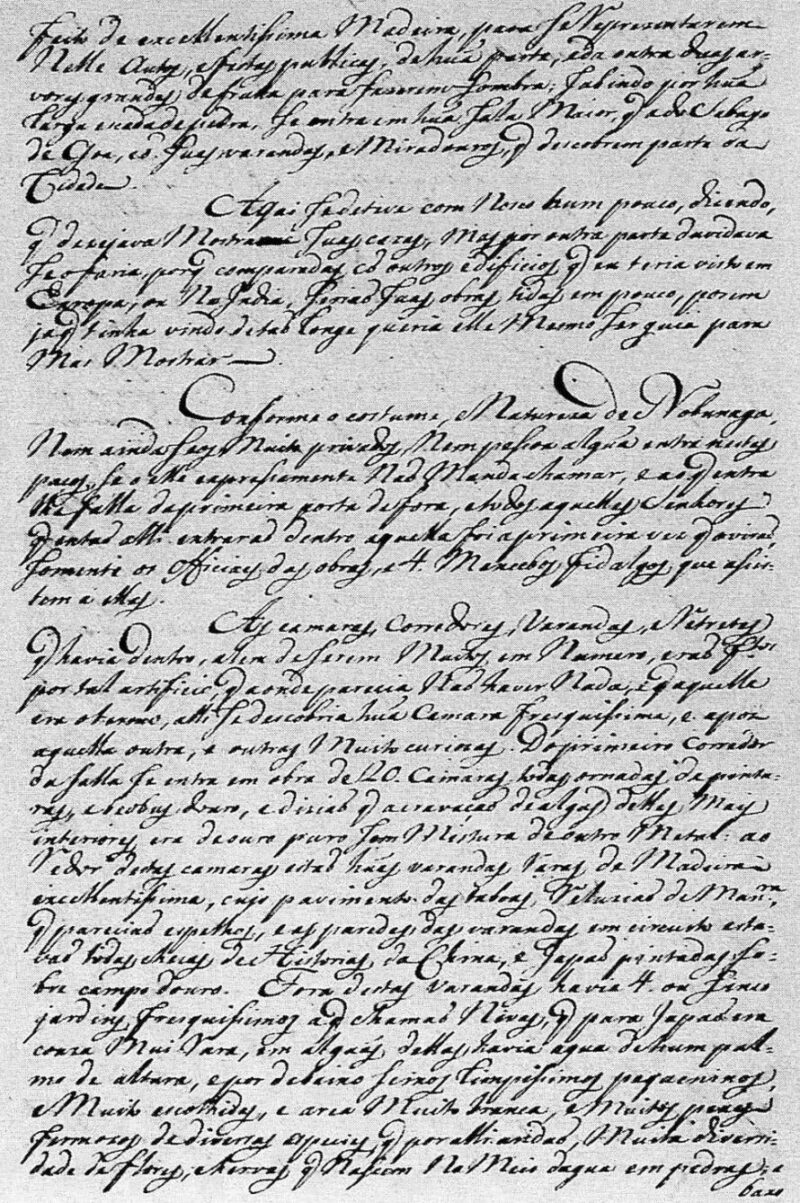 feito de excellentissima Madeira, para se Representarem
Nelle Autos, e festas publicas, de hũa parte, e da outra duas ar-
vores grandes de fruita para fazerem sombra; subindo por hũa
larga escada de pedra, se entra em hũa salla Maior, q̃ a do Sabayo
de Goa, cõ suas varandas, e Miradouros, q̃ descobrem parte da
Cidade.
Aqui se deteve com Nosco hum pouco, dizendo,
q̃ desejava Mostrarme suas cazas, Mas por outra parte duvidava
se o faria, porq̃ comparadas cõ outros edificios q̃ eu teria visto em
Europa, ou Na India, serião suas obras tidas em pouco, porem
ja q̃ tinha vindo de tão longe queria elle Mesmo ser guia para
Mas Mostrar.
Conforme o costume, e Natureza de Nobunaga,
Nem ainda seos Muito privados, Nem pessoa algũa entra nestes
paços, se o elle expressamente Não Manda chamar, e ao q̃ entra
lhe falla da primeira porta de fora, e todos aquelles Senhores
q̃ então alli entrarão dentro aquella foi a primeira vez q̃ o virão
somente os officiaes das obras, e 4. Mancebos fidalgos, que assis-
tem a ellas.
As camaras, Corredores, Varandas, e Retretes
q̃ havia dentro, alem de serem Muitos em Numero, erão f.tos
por tal artificio, q̃ aonde parecia Não haver Nada, e q̃ aquelle
era o termo, alli se descobria hũa Camara fresquissima, e apoz
aquella outra, e outras Muito curiosas. Do primeiro Corredor
da salla se entra em obra de 20. Camaras, todas ornadas de pintu-
ras, e beobus douro, e dizião q̃ a cravação de algũas dellas Mais
interiores era de ouro puro sem Mistura de outro Metal: ao
Redor destas camaras estão hũas varandas Raras de Madeira
excellentissima, cujo pavimento das taboas, Reluzião de Man.ra
q̃ parecião espelhos, e as paredes das varandas em circuito esta-
vão todas cheias de Historias da China, e Japão pintadas so-
bre campo douro. Fora destas varandas havia 4. ou sinco
jardins fresquissimos a q̃ chamão Nivas, q̃ para Japão era
couza Mui Rara, em algũs dellas havia agua de hum pal-
mo de altura, e por debaixo seixos limpissimos pequeninos,
e Muito escolhidos, e area Muito branca, e Muitos peixes
fermozos de diversas especies, q̃ por alli andão, Muita diversi-
dade de flores, e hervas q̃ Nascem No Meio dagua em pedras, a
baxo